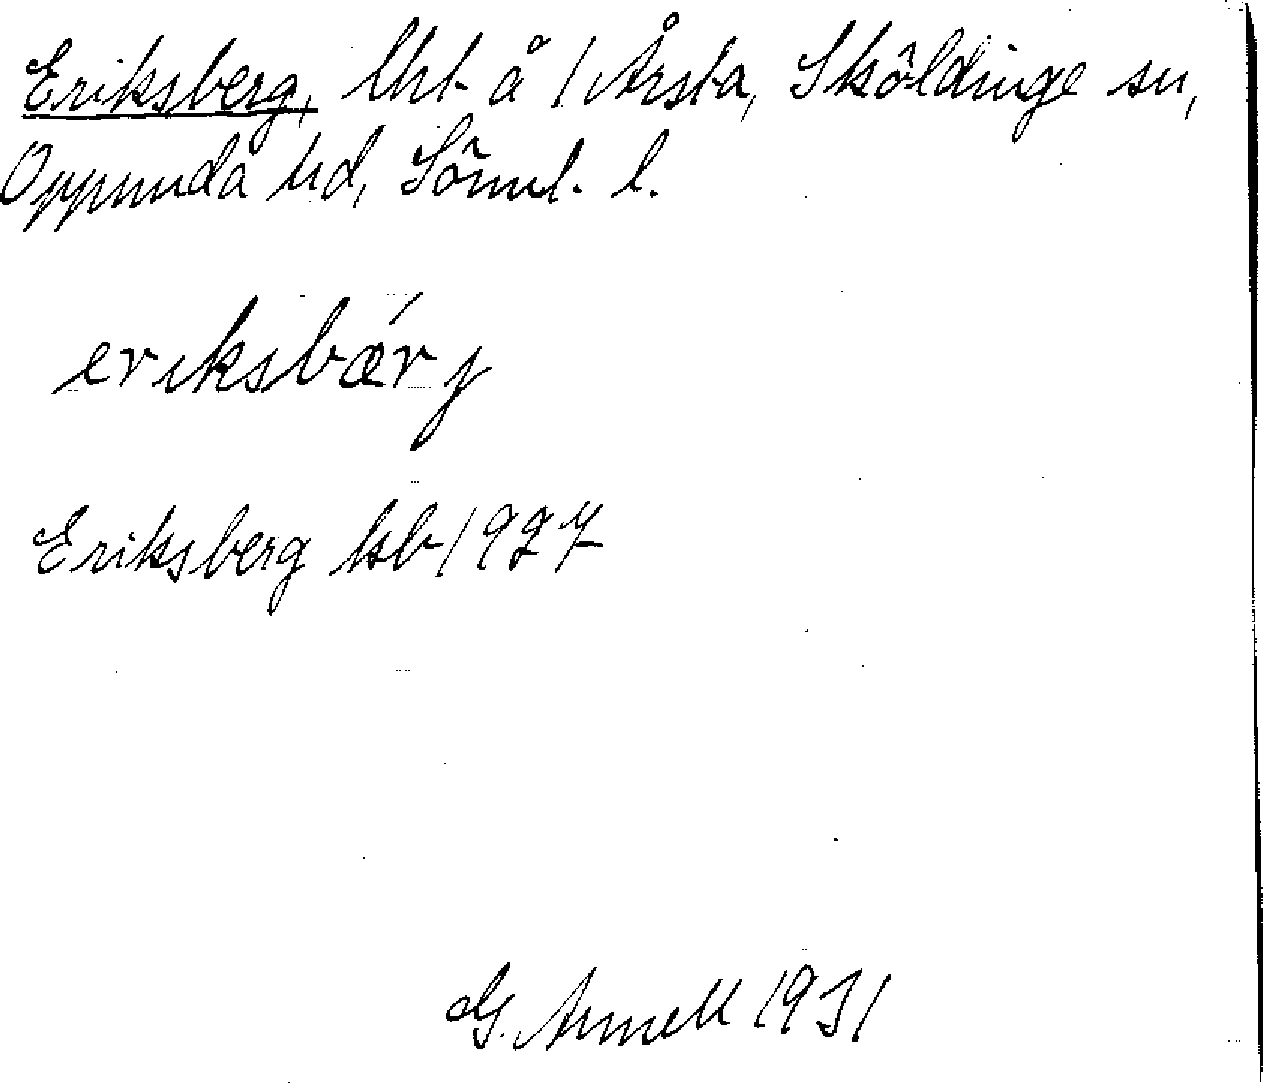 Eriksberg, lht å 1 Årsta, Sköldinge sn,
Oppunda hd, Söml. l.
eriksbæŕj
Eriksberg kb 1927
G. Arnell 1931